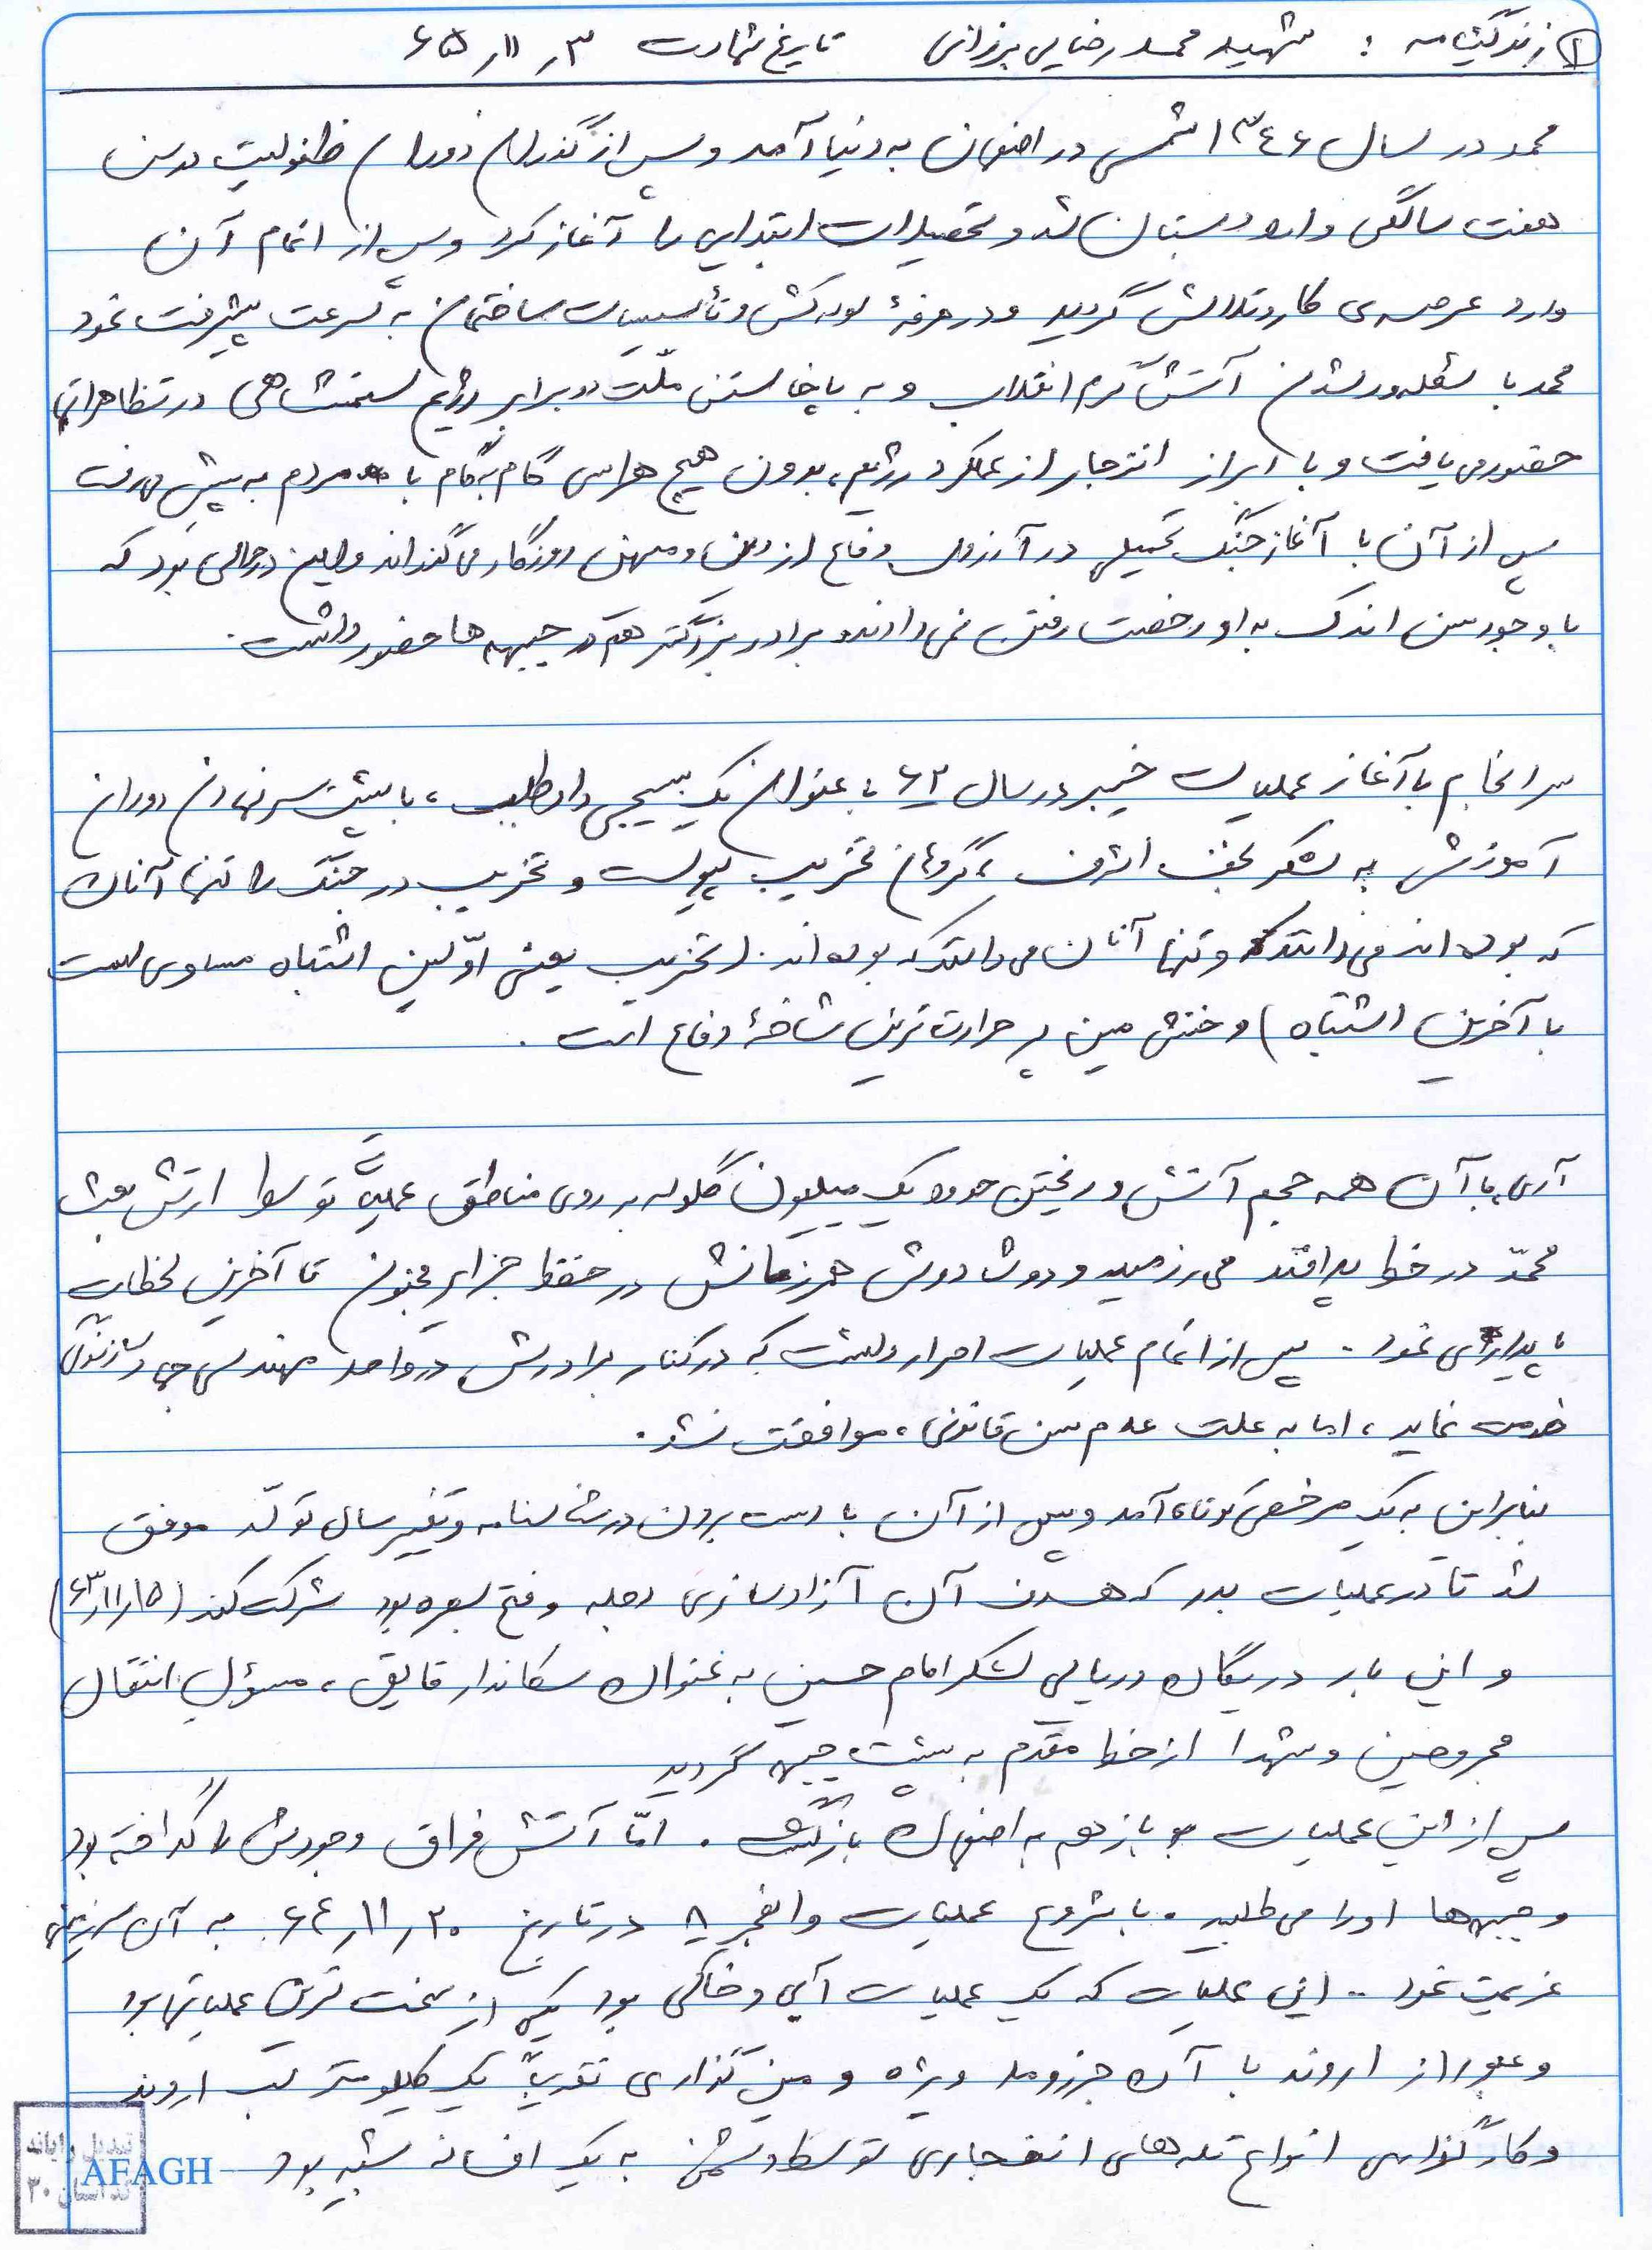 ① زندگینامه : شهید محمد رضایی برزانی تاریخ شهادت ۳ر۱۱ر۶۵
محمد در سال ۱۳۴۶ شمسی در اصفهان به دنیا آمد و پس از گذران دوران طفولیت در سن
هفت سالگی وارد دبستان شد و تحصیلات ابتدایی را آغاز کرد و پس از اتمام آن
وارد عرصه‌ی کار و تلاش گردید و در حرفهٔ لوله کشی و تأسیسات ساختمان به سرعت پیشرفت نمود
محمد با شعله‌ور شدن آتش گرم انقلاب و به پا خاستن ملّت در برابر رژیم ستمشاهی در تظاهراتها
حضور می یافت و با ابراز انزجار از عملکرد رژیم، بدون هیچ هراسی گام به گام با مردم به پیش می‌رفت
پس از آن با آغاز جنگ تحمیلی در آرزوی دفاع از دین و میهن روزگار می گذراند و این در حالی بود که
با وجود سن اندک به او رخصت رفتن نمی دادند و برادر بزرگتر هم در جبهه ها حضور داشت.
سرانجام با آغاز عملیات خیبر در سال ۶۲ به عنوان یک بسیجی داوطلب، با پشت سر نهادن دوران
آموزش به لشکر نجف اشرف، گردان تخریب پیوست و تخریب در جنگ را تنها آنان
که بوده اند می دانند و تنها آنان می دانند که بوده اند. (تخریب یعنی اوّلین اشتباه مساوی است
با آخرین اشتباه) و خنثی مین پر حرارت ترین شاخهٔ دفاع است.
آری، با آن همه حجم آتش و ریختن حدود یک میلیون گلوله بر روی مناطق عملیاتی توسط ارتش بعث
محمّد در خط پدافند می رزمید و دوش دوش همرزمانش در حفظ جزایر مجنون تا آخرین لحظات
پایداری نمود. پس از اتمام عملیات اصرار داشت که در کنار برادرش در واحد مهندسی جهاد سازندگی
خدمت نماید، اما به علت عدم سن قانونی، موافقت نشد.
بنابراین به یک مرخصی کوتاه آمد و پس از آن با دست بردن در شناسنامه و تغییر سال تولّد موفق
شد تا در عملیات بدر که هدف آن آزادسازی دجله و فتح بصره بود شرکت کند (۱۵ر۱۱ر۶۳)
و این بار در یگان دریایی لشکر امام حسین به عنوان سکاندار قایق، مسؤل انتقال
مجروحین و شهدا از خط مقدّم به پشت جبهه گردید
پس از این عملیات باز هم به اصفهان بازگشت. امّا آتش فراق وجودش را گداخته بود
و جبهه‌ها او را می طلبید. با شروع عملیات والفجر ۸ در تاریخ ۲۰ر۱۱ر۶۴ به آن سرزمین
عزیمت نمود.. این عملیات که یک عملیات آبی و خاکی بود یکی از سخت ترین عملیاتها بود
و عبور از اروند با آن جزر و مد ویژه و مین گذاری تقریباً یک کیلومتر لب اروند
و کارگذاری انواع تله های انفجاری توسط دشمن به یک افسانه شبیه بود
تبدیل رایانه
AFAGH